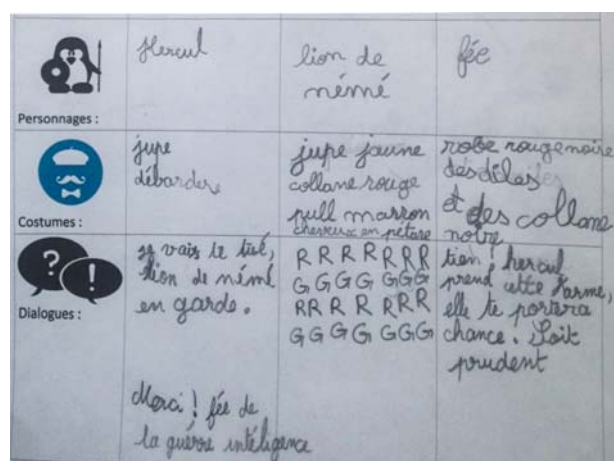 Personnages :
Hercul
lion de
némé
fée
Costumes :
jupe
débardere
jupe jaune
collane rouge
pull marron
chevreux en pétare
robe rouge noire
des
et des collane
noire
?
!
Dialogues :
je vais te tué,
lion de némé
en garde.
Merci ! fée de
la guérre intéligence
R R R R R R R
G G G G G G G
R R R R R R R
G G G G G G G
tien ! hercul
prend cette arme,
elle te portera
chance. Soit
prudent